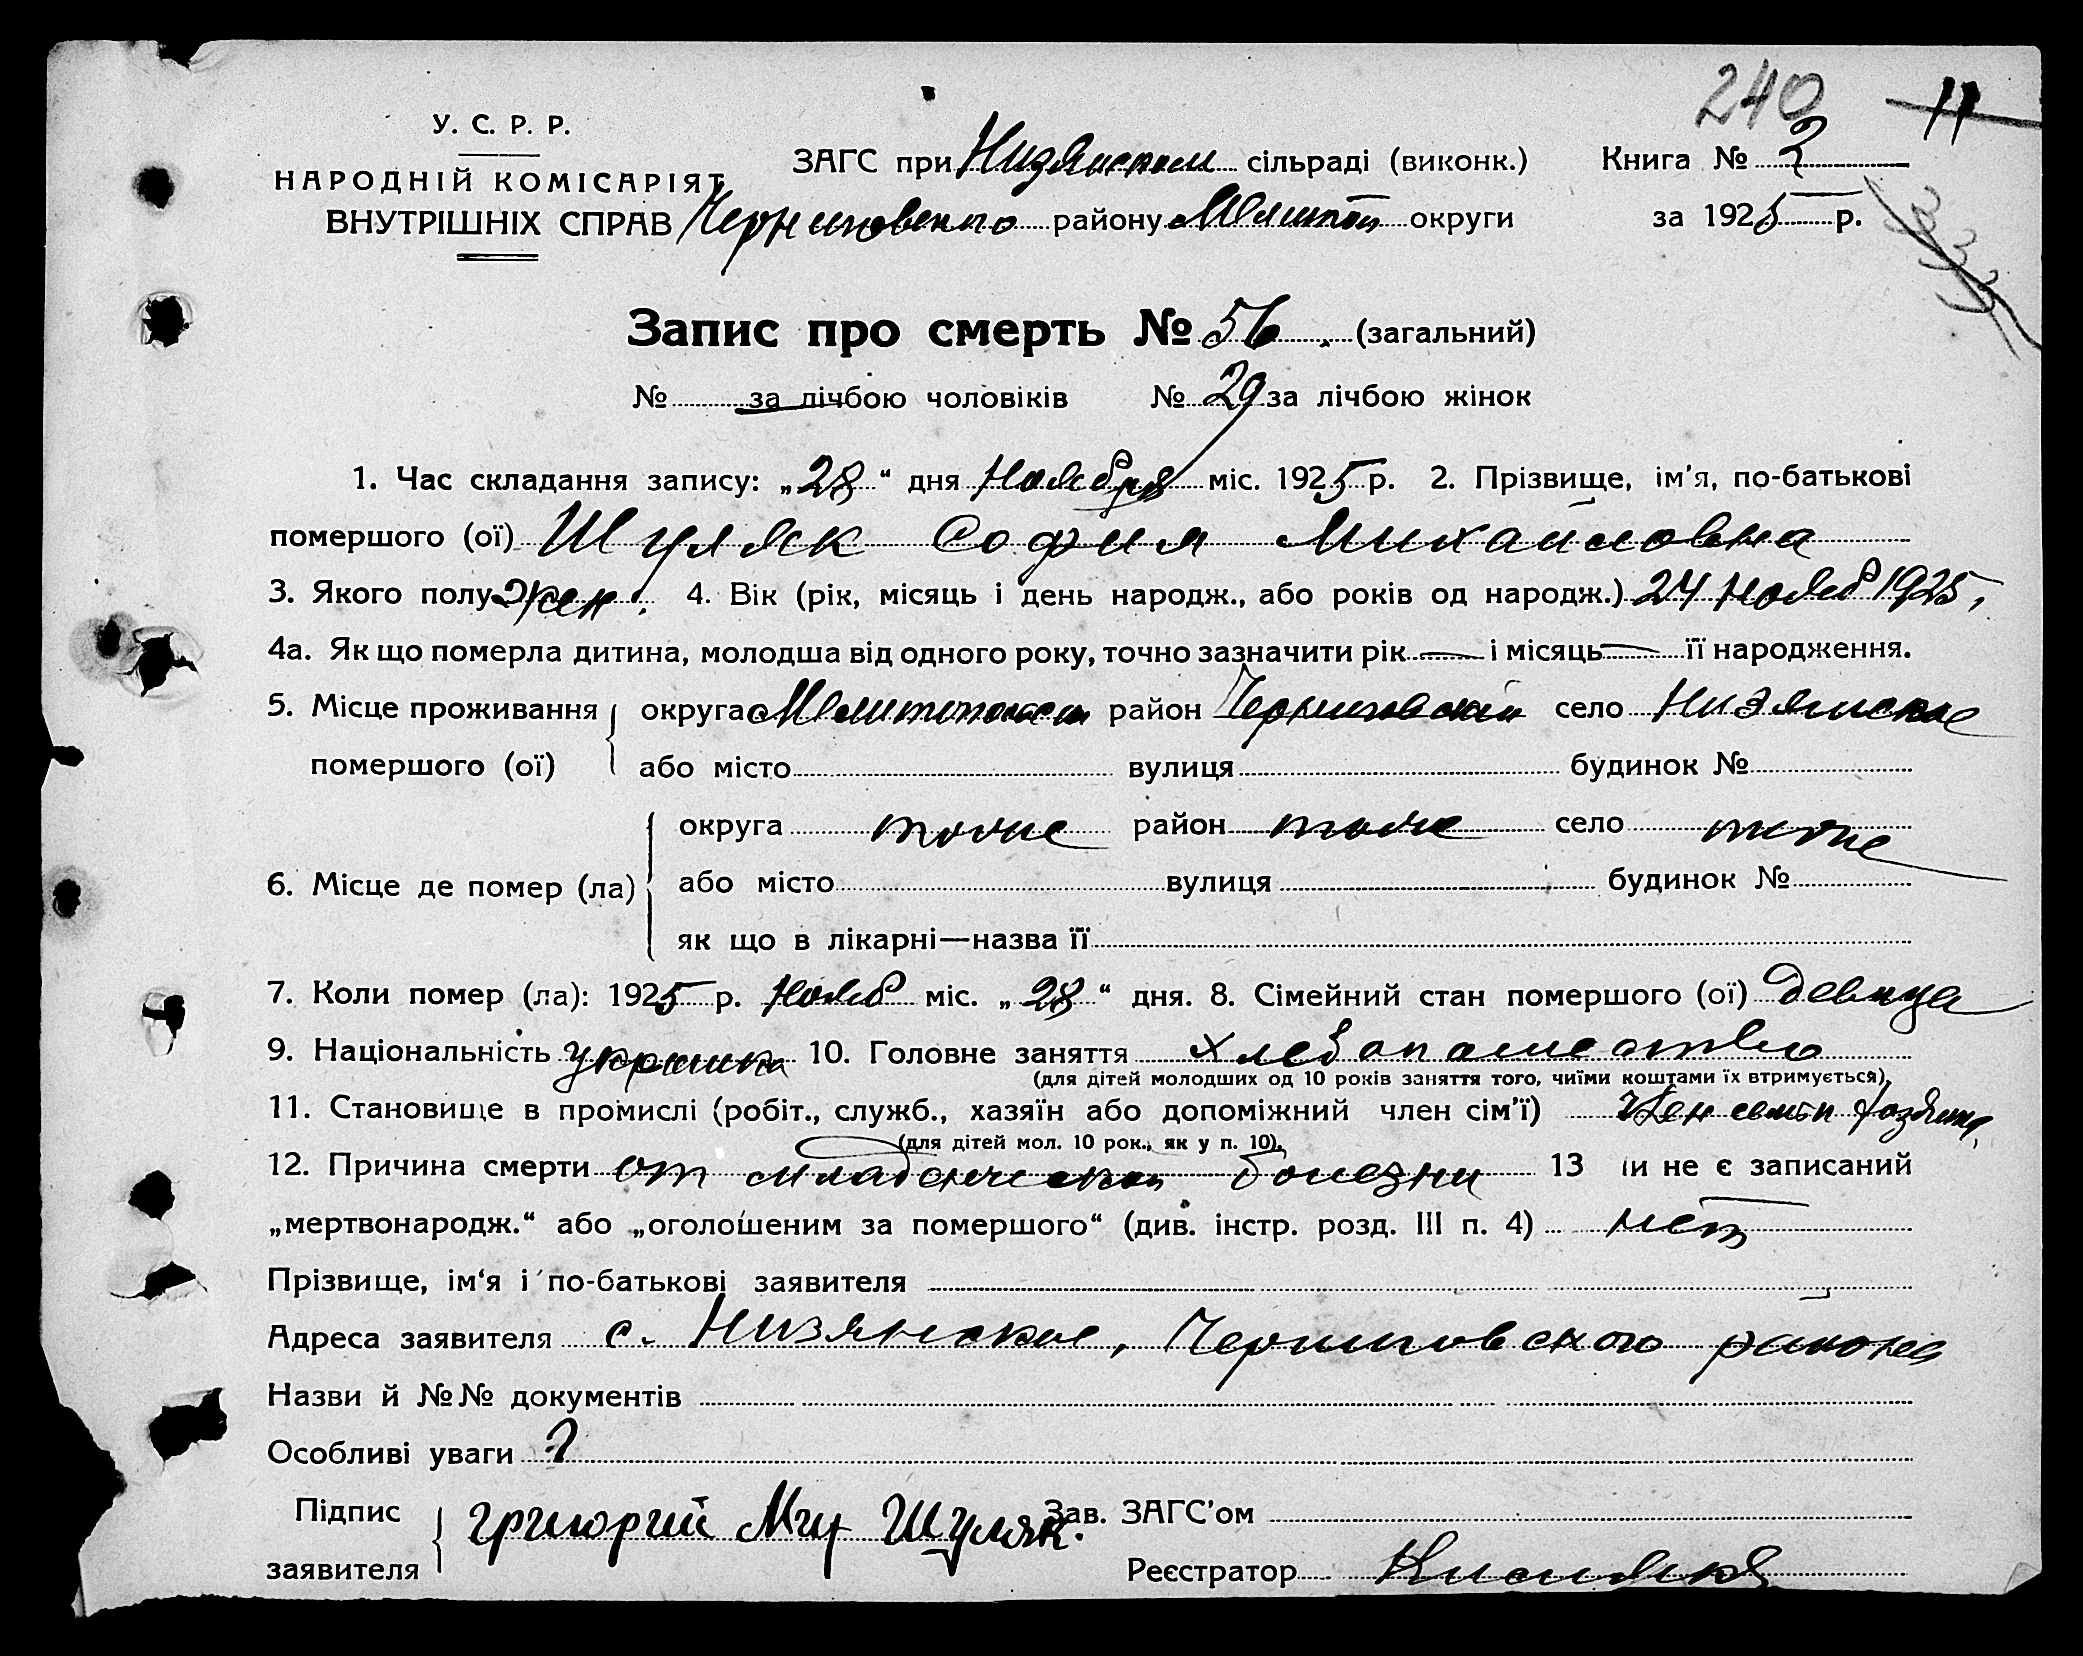 240 11
У. С. Р. Р.
НАРОДНІЙ КОМІСАРІЯТ
ВНУТРІШНІХ СПРАВ
ЗАГС при Низянском сільраді (виконк.) Книга № 2
Черниговского району Мелитоп округи за 1925 р.
Запис про смерть № 56 (загальний)
№ за лічбою чоловіків № 29 за лічбою жінок
1. Час складання запису: „28“ дня Ноября міс. 1925 р. 2. Прізвище, ім'я, по-батькові
помершого (ої) Шуляк София Михайловна
3. Якого полу жен. 4. Вік (рік, місяць і день народж., або років од народж.) 24 Нояб 1925,
4а. Як що померла дитина, молодша від одного року, точно зазначити рік — і місяць — її народження.
5. Місце проживання округа Мелитопольск район Черниговский село Низянское
помершого (ої) або місто вулиця будинок №
округа тоже район тоже село тоже
6. Місце де помер (ла) або місто вулиця будинок №
як що в лікарні—назва її
7. Коли помер (ла): 1925 р. Нояб міс. „28“ дня. 8. Сімейний стан помершого (ої) девица
9. Національність украинка 10. Головне заняття хлебопашество
(для дітей молодших од 10 років заняття того, чиїми коштами їх втримується).
11. Становище в промислі (робіт., служб., хазяїн або допоміжний член сім'ї) член семьи хозяина,
(для дітей мол. 10 рок., як у п. 10).
12. Причина смерти от младенческой болезни 13 и не є записаний
„мертвонародж.“ або „оголошеним за помершого“ (див. інстр. розд. III п. 4) нет
Прізвище, ім'я і по-батькові заявителя
Адреса заявителя с. Низянское, Черниговского района
Назви й №№ документів
Особливі уваги
Підпис
заявителя Григорий Мих Шуляк. Зав. ЗАГС'ом
Реєстратор